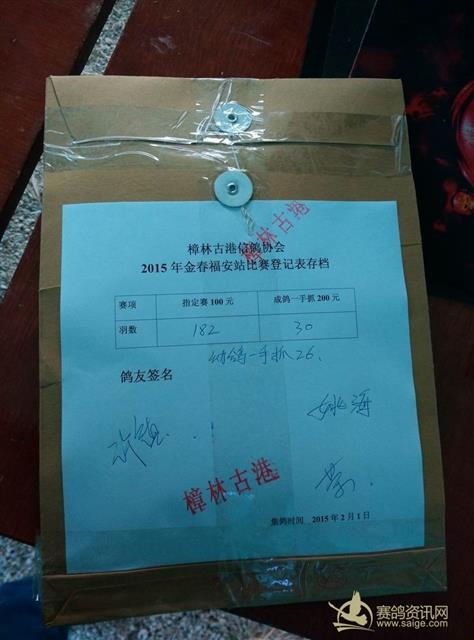 樟林古港信鸽协会
樟林古港
2015 年金春福安站比赛登记表存档
赛项 指定赛 100 元 成鸽一手抓 200 元
羽数 182 30
幼鸽一手抓26.
鸽友签名
樟林古港
集鸽时间 2015 年 2 月 1 日
赛鸽资讯网
www.saige.com